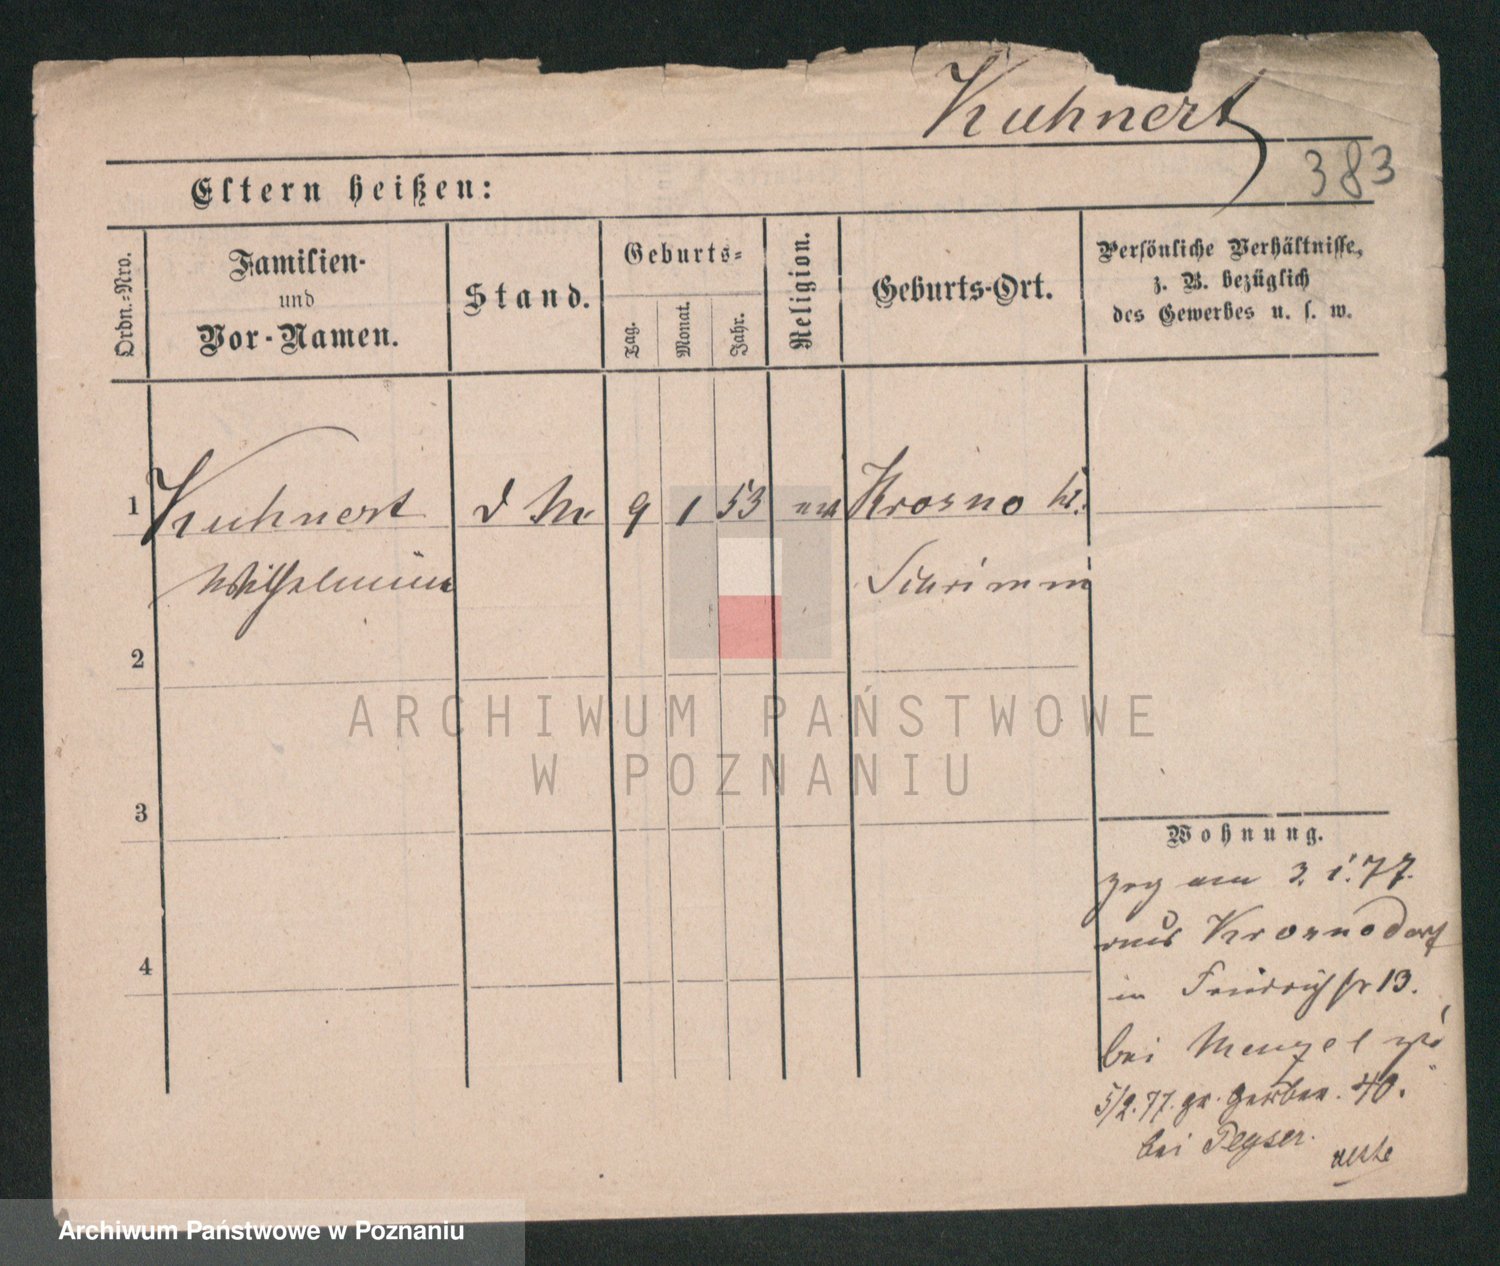 Kuhnert
383
Eltern heißen:
Ordn.-Nro.
Familien-
und
Vor-Namen.
Stand.
Geburts-
Tag.
Monat.
Jahr.
Religion.
Geburts-Ort.
Persönliche Verhältnisse,
z. B. bezüglich
des Gewerbes u. s. w.
1 Kuhnert d M. 9 1 53 Krosno
Wilhelmine Schrimm
2
3
4
Wohnung.
zog am 3. 1. 77.
aus Krosnodorf
in Friedrichstr 13.
bei Menzel
5/2. 77. gr. Gerber. 40.
bei Peyser.
ARCHIWUM PAŃSTWOWE
W POZNANIU
Archiwum Państwowe w Poznaniu